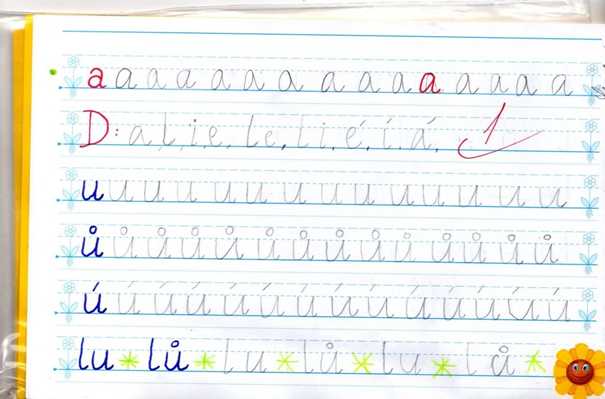 a a a a a a a a a a a a a a a
D: a, l, i, e, le, li, é, í, á, 1
u u u u u u u u u u u u u u
ů ů ů ů ů ů ů ů ů ů ů ů ů ů
ú ú ú ú ú ú ú ú ú ú ú ú ú ú
lu * lů * lu * lů * lu * lů *